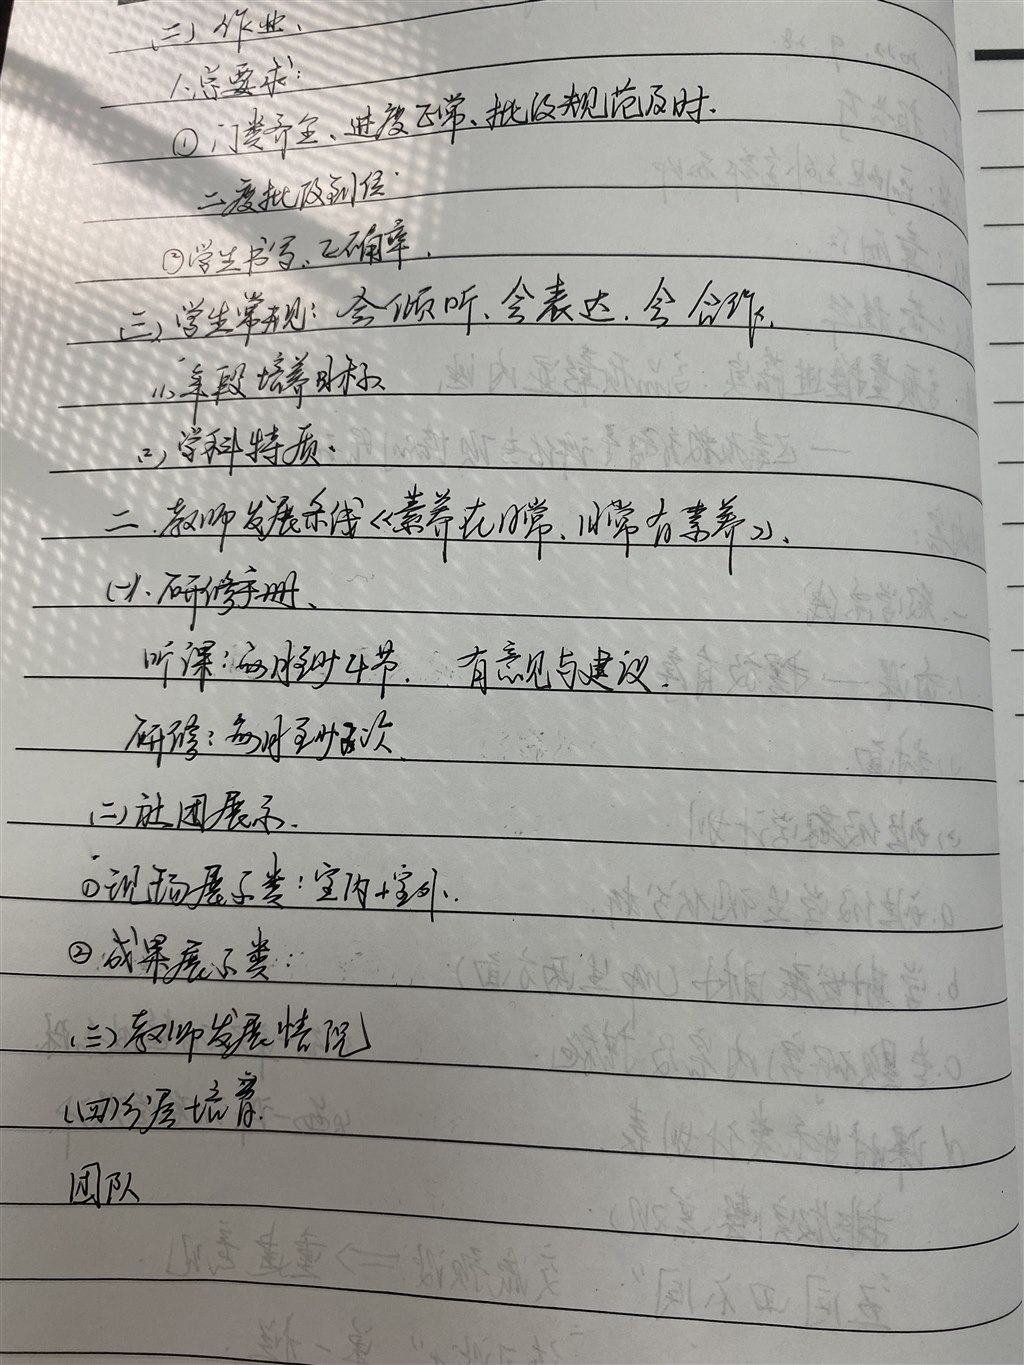 (二)作业、
1、总要求：
①门类齐全、进度正常、批改规范及时.
二度批改到位.
②学生书写、正确率.
(三)学生常规：会倾听、会表达、会合作.
(1)年段培养目标.
(2)学科特质：
二.教师发展条线《素养在日常、日常有素养》.
(一).研修手册、
听课：每月至少4节. 有意见与建议.
研修：每月至少五次
(二)社团展示.
①现场展示类：室内+室外.
②成果展示类：
(三)教师发展情况
(四)分层培育.
团队